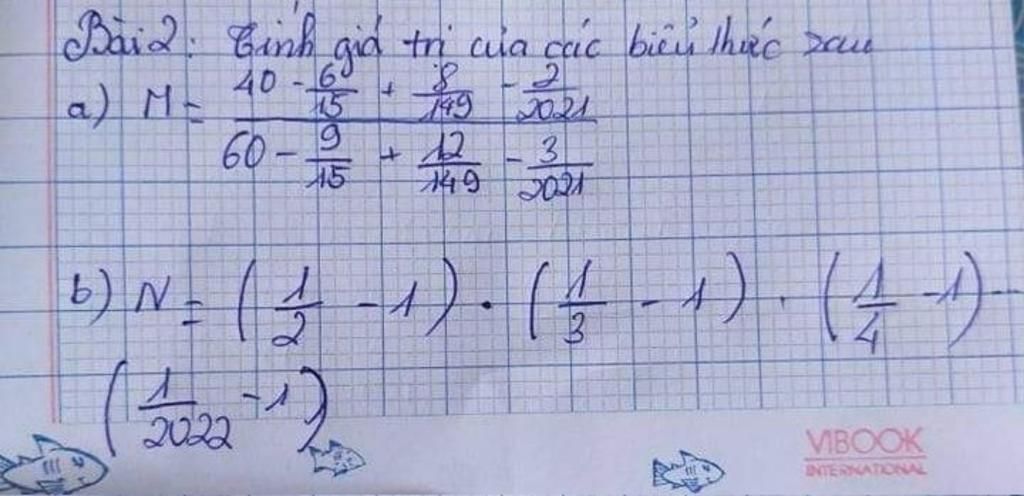 Bài 2: Tính giá trị của các biểu thức sau
a) M = (40 - 6/15 + 8/149 - 2/2021) / (60 - 9/15 + 12/149 - 3/2021)
b) N = (1/2 - 1) . (1/3 - 1) . (1/4 - 1) ...
(1/2022 - 1)
VIBOOK
INTERNATIONAL